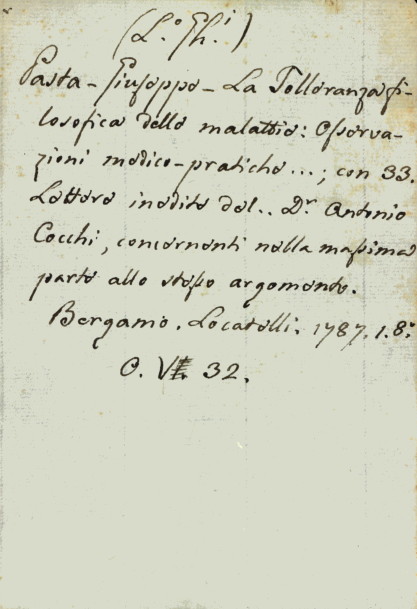 (L.º Gh.i)
Pasta - Giuseppe - La Tolleranza fi-
losofica delle malattie: Osserva-
zioni medico-pratiche...; con 33.
Lettere inedite del.. Dr. Antonio
Cocchi, concernenti nella massima
parte allo stesso argomento.
Bergamo. Locatelli. 1787. 1. 8.º
O. 32.